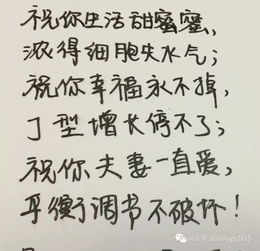 祝你生活甜蜜蜜,
浓得细胞失水气;
祝你幸福永不掉,
J型增长停不了;
祝你夫妻一直爱,
平衡调节不破坏!
微信号: echology2015